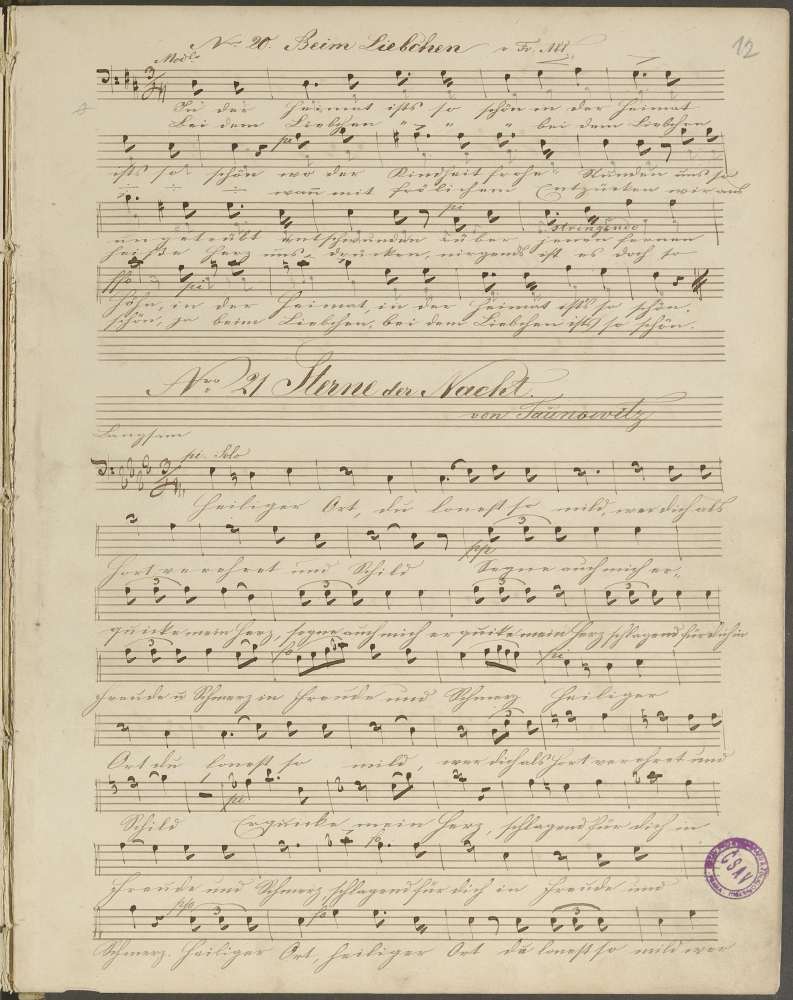 No. 20. Beim Liebchen v. Fr. Abt
12
Modto
In der Heimat ists so schön in der Heimat
Bei dem Liebchen " " " bei dem Liebchen
pi
ists so schön wo der Kindheit frohe Stunden uns so
÷ ÷ ÷ wann mit frölichem Entzücken wir ans
pi
stringendo
ungetrübt entschwunden
heiße Herz uns drücken, nirgends ist es doch so
ffo pi
Höhn, in der Heimat, in der Heimat ists so schön.
schön, ja beim Liebchen, bei dem Liebchen ists so schön.
Nro 21 Sterne der Nacht.
von Taunowitz
Langsam
pi. Solo
Heiliger Ort, du so mild, wer dich als
pp
Hort verehret und Schild Segne auch mich er-
quicke mein Herz, segne auch mich erquicke mein Herz schlagend für dich in
fo pi
Freude u Schmerz in Freude und Schmerz Heiliger
Ort du so mild, wer dich als Hort verehret und
pi
Schild Erquicke mein Herz, schlagend für dich in
fo
Freude und Schmerz schlagend für dich in Freude und
pp fo
Schmerz. Heiliger Ort, heiliger Ort du so mild wer
ČSAV